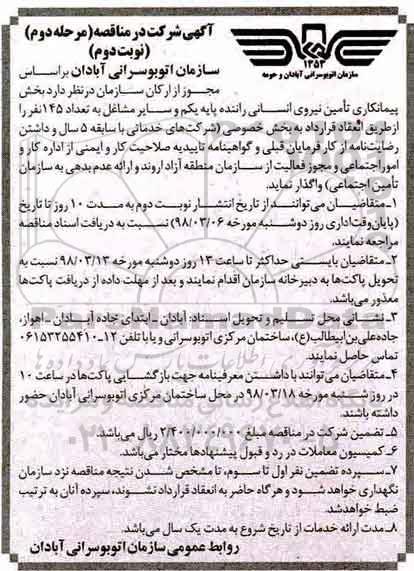 آگهی شرکت در مناقصه (مرحله دوم)
(نوبت دوم)
۱۳۵۳
سازمان اتوبوسرانی آبادان و حومه
سازمان اتوبوسرانی آبادان براساس
مجوز از ارکان سازمان در نظر دارد بخش
پیمانکاری تأمین نیروی انسانی راننده پایه یکم و سایر مشاغل به تعداد ۱۴۵ نفر را
از طریق انعقاد قرارداد به بخش خصوصی (شرکت‌های خدماتی با سابقه ۵ سال و داشتن
رضایت‌نامه از کار فرمایان قبلی و گواهینامه تاییدیه صلاحیت کار و ایمنی از اداره کار و
امور اجتماعی و مجوز فعالیت از سازمان منطقه آزاد اروند و ارائه عدم بدهی به سازمان
تأمین اجتماعی) واگذار نماید.
۱ـ متقاضیان می‌توانند از تاریخ انتشار نوبت دوم به مدت ۱۰ روز تا تاریخ
(پایان وقت اداری روز دوشنبه مورخه ۹۸/۰۳/۰۶) نسبت به دریافت اسناد مناقصه
مراجعه نمایند.
۲ـ متقاضیان بایستی حداکثر تا ساعت ۱۳ روز دوشنبه مورخه ۹۸/۰۳/۱۳ نسبت به
تحویل پاکت‌ها به دبیرخانه سازمان اقدام نمایند و بعد از مهلت داده از دریافت پاکت‌ها
معذور می‌باشد.
۳ـ نشانی محل تسلیم و تحویل اسناد: آبادان ـ ابتدای جاده آبادان ـ اهواز،
جاده علی بن ابیطالب(ع)، ساختمان مرکزی اتوبوسرانی و یا با تلفن ۱۲ـ۰۶۱۵۳۲۵۵۴۱۰
تماس حاصل نمایند.
۴ـ متقاضیان می‌توانند با داشتن معرفینامه جهت بازگشایی پاکت‌ها در ساعت ۱۰
در روز شنبه مورخه ۹۸/۰۳/۱۸ در محل ساختمان مرکزی اتوبوسرانی آبادان حضور
داشته باشند.
۵ـ تضمین شرکت در مناقصه مبلغ ۲/۴۰۰/۰۰۰/۰۰۰ ریال می‌باشد.
۶ـ کمیسیون معاملات در رد و قبول پیشنهادها مختار می‌باشد.
۷ـ سپرده تضمین نفر اول تا سوم، تا مشخص شدن نتیجه مناقصه نزد سازمان
نگهداری خواهد شود و هرگاه حاضر به انعقاد قرارداد نشوند، سپرده آنان به ترتیب
ضبط خواهد شد.
۸ـ مدت ارائه خدمات از تاریخ شروع به مدت یک سال می‌باشد.
روابط عمومی سازمان اتوبوسرانی آبادان